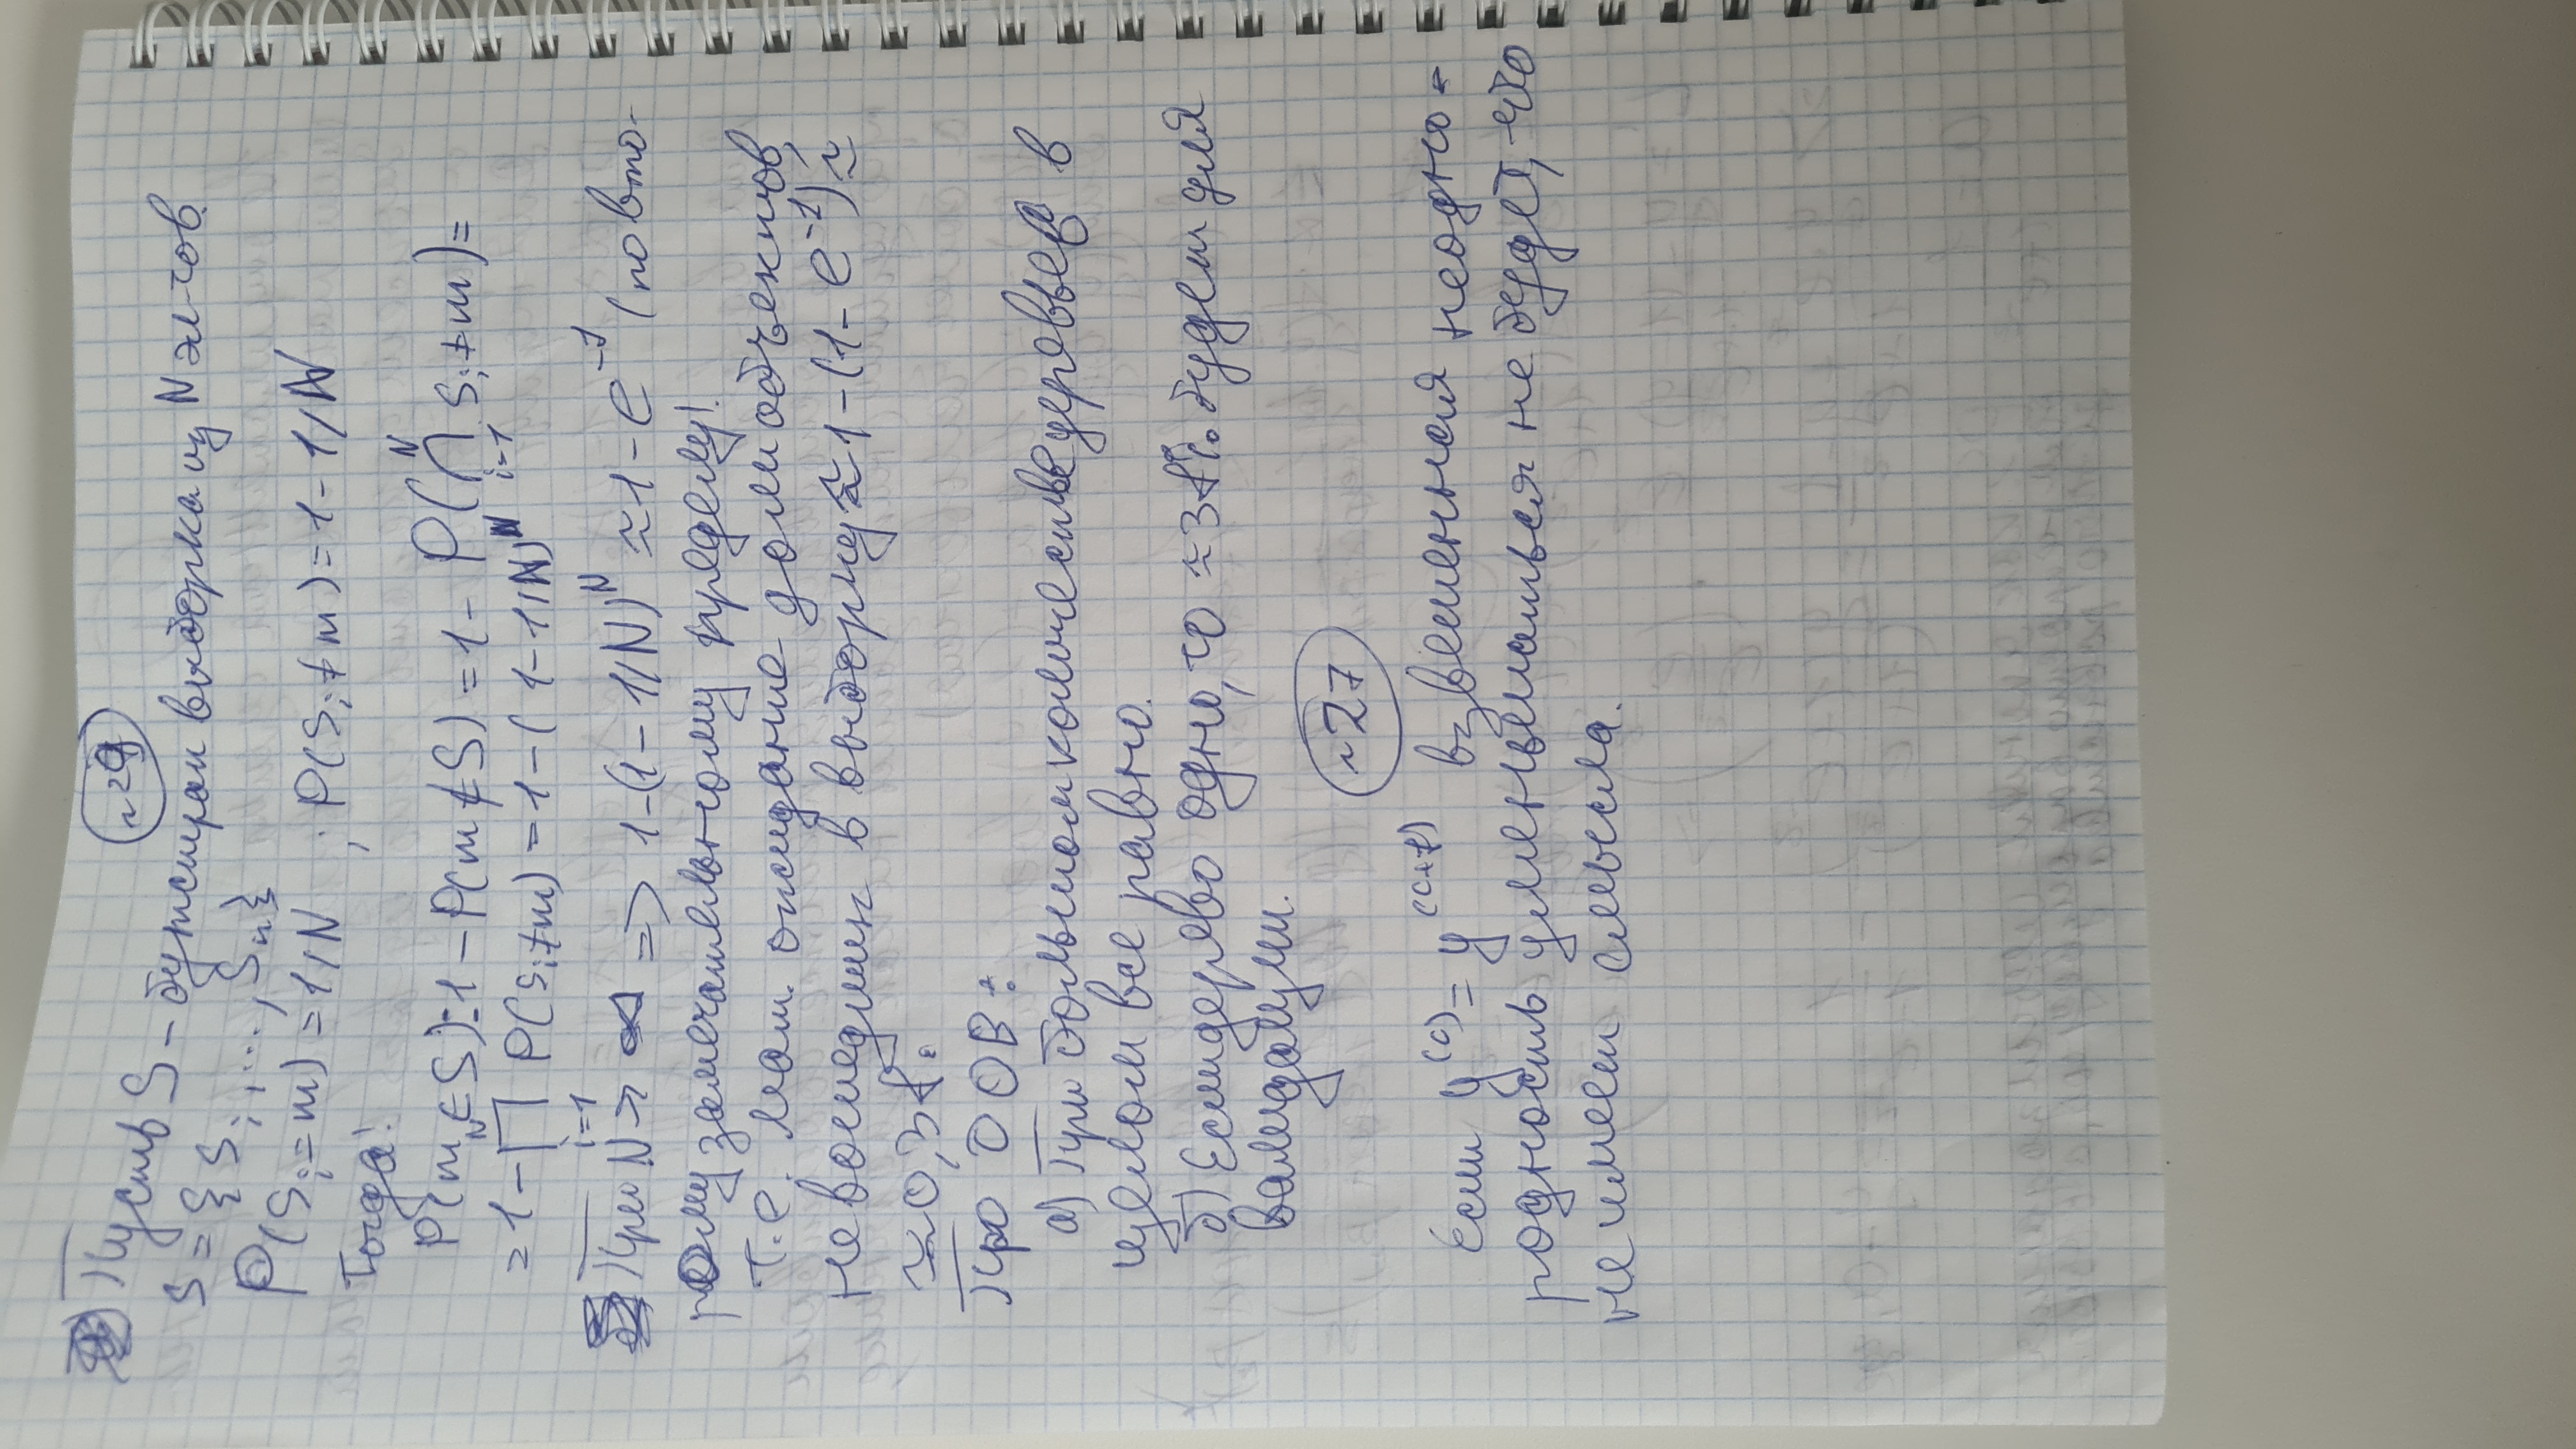 ~29
Пусть S - бутстрап выборка из N эл-тов.
S = {S_i, ..., S_n}
P(S_i = m) = 1/N ; P(S_i ≠ m) = 1 - 1/N
Тогда:
P(m ∈ S) = 1 - P(m ∉ S) = 1 - P(⋂_{i=1}^{N} S_i ≠ m) =
= 1 - ∏_{i=1}^{N} P(S_i ≠ m) = 1 - (1 - 1/N)^N
При N → ∞ => 1 - (1 - 1/N)^N ≈ 1 - e^{-1} (по вто-
рому замечательному пределу!
Т.е. мат. ожидание доли объектов,
не вошедших в выборку ≈ 1 - (1 - e^{-1}) ≈
≈ 0,37.
Про OOB:
а) При большом количестве деревьев в
целом все равно.
б) Если дерево одно, то ≈ 37% будет для
валидации.
~27
Если y^{(c)} = y^{(c+1)} взвешенная неодно-
родность уменьшаться не будет, что
не имеет смысла.